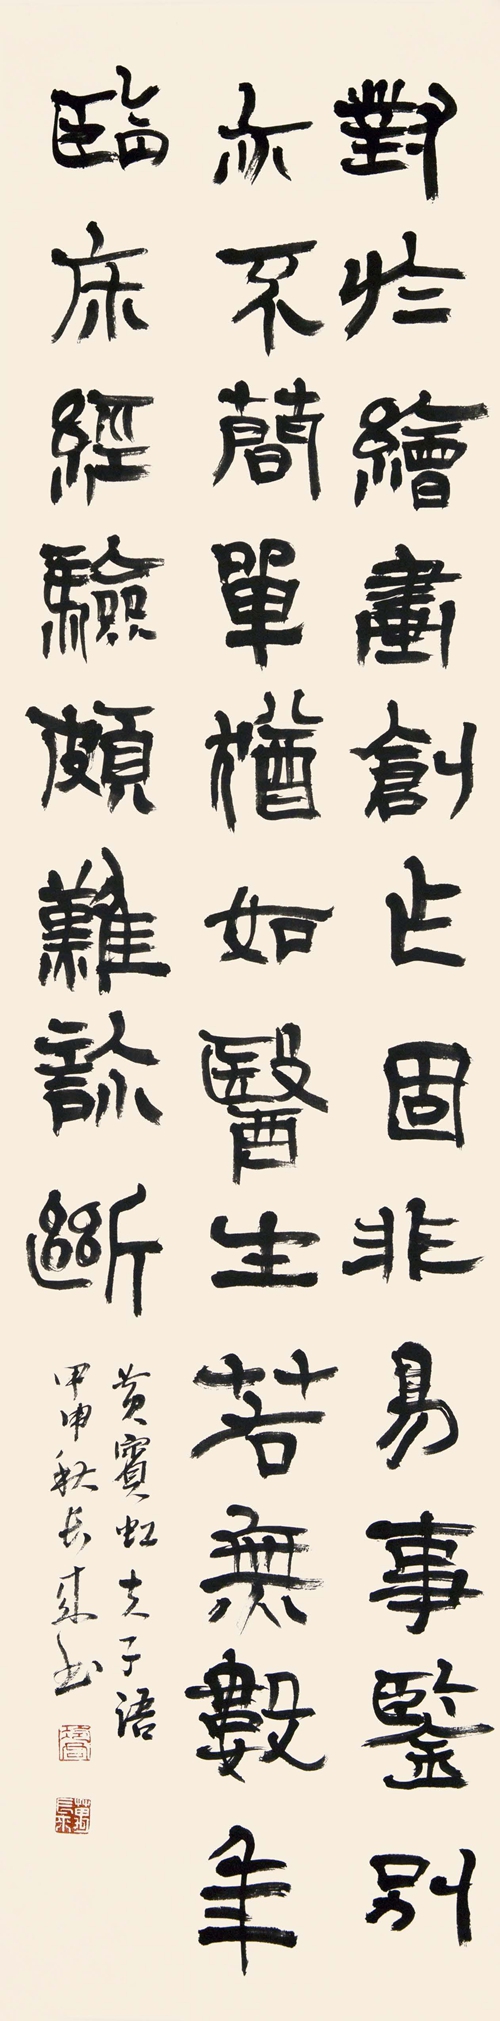 對於繪畫創作固非易事鑒別
亦不簡單猶如醫生若無數年
臨床經驗頗難診斷
黃賓虹夫子語
甲申秋長來書